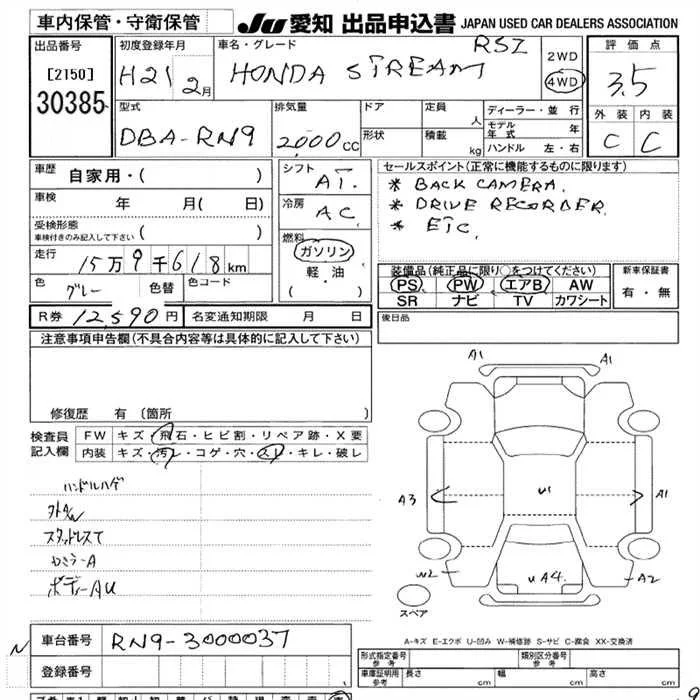 車内保管・守衛保管
JU 愛知 出品申込書 JAPAN USED CAR DEALERS ASSOCIATION
出品番号
[2150]
30385
初度登録年月
H21 2月
車名・グレード
HONDA STREAM RSZ
2WD
4WD
評価点
3.5
外装 内装
C C
型式
DBA-RN9
排気量
2000cc
ドア
形状
定員 人
積載 kg
ディーラー・並行
モデル年式 年
ハンドル 左・右
車歴 自家用・( )
車検 年 月( 日)
受検形態
車検付きのみ記入して下さい ( )
走行 15万9千618km
色 グレー 色替 色コード
シフト AT.
冷房 AC
燃料
ガソリン
軽・油
( ・ )
セールスポイント(正常に機能するものに限ります)
* BACK CAMERA.
* DRIVE RECORDER
* ETC.
装備品(純正品に限り○をつけてください)
PS PW エアB AW
SR ナビ TV カワシート
新車保証書
有・無
R券 12,590円 名変通知期限 月 日
後日品
注意事項申告欄(不具合内容等は具体的に記入して下さい)
修復歴 有(箇所 )
検査員
記入欄
FW キズ・飛石・ヒビ割・リペア跡・X要
内装 キズ・汚レ・コゲ・穴・スレ・キレ・破レ
ハンドルハゲ
スタッドレスT
カミラーA
ボディーAU
A1 A1
A3 U1 A1
W2 UA4. A2
スペア
A-キズ E-エクボ U-凹み W-補修跡 S-サビ C-腐食 XX-交換済
N 車台番号 RN9-3000037
登録番号
形式指定番号 参考
類別区分番号 参考
車庫証明用 参考 長さ cm 幅 cm 高さ cm